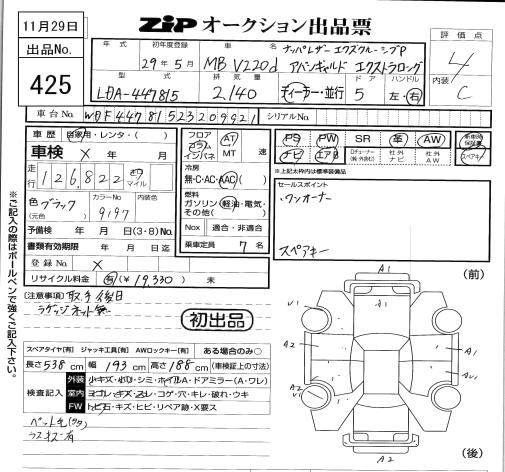 11月29日
出品No.
425
ZiP オークション出品票
年式 初年度登録 車名
29年5月 MB V220d ナッパレザーエクスクルーシブP アバンギャルド エクストラロング
評価点
4
内装
C
型式 排気量 ドア ハンドル
LDA-447815 2,140 ディーラー・並行 5 左・右
車台No. WDF44781523209921 シリアルNo.
車歴 自家用・レンタ・( )
車検 X 年 月
走行 126,822 キロ マイル
色(元色) ブラック カラーNo. 9197 内装色
予備検 年 月 日(3・8)No.
書類有効期限 年 月 日迄
登録No. X
リサイクル料金 有(¥19,330) 未
フロア コラム インパネ AT MT 速
冷房 無・C・AC・AAC( )
燃料 ガソリン・軽油・電気・その他( )
Nox 適合・非適合
乗車定員 7 名
PS PW SR 革 AW 新車時保証書
ナビ エアB Dチューナー(純・外含む) 社外ナビ 社外AW スペアキー
※上記太枠内は標準装備品
セールスポイント
・ワンオーナー
スペアキー
(注意事項)取手後日
ラゲッジネット無
初出品
スペアタイヤ[有] ジャッキ工具[有] AWロックキー[有] ある場合のみ○
長さ538cm 幅193cm 高さ188cm (車検証上の寸法)
検査記入
外装 小キズ・小凹・シミ・ホイルA・ドアミラー(A・ワレ)
室内 ヨゴレ・キズ・スレ・コゲ・穴・キレ・破れ・ウキ
FW トビ石・キズ・ヒビ・リペア跡・X要ス
ペット毛(タタ)
ラスキズ有
※ご記入の際はボールペンで強くご記入下さい。
(前)
A1
V1
A1
A2
A1
A2
AU1
A2
V2
V1
A2
(後)